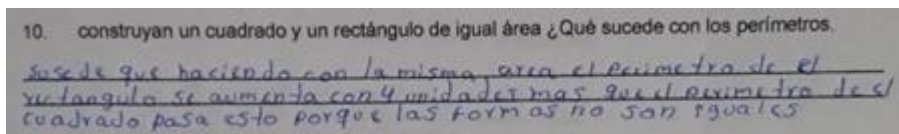 10. construyan un cuadrado y un rectángulo de igual área ¿Qué sucede con los perímetros.
susede que haciendo con la misma area el perimetro de el
rectangulo se aumenta con 4 unidades mas que el perimetro de el
cuadrado pasa esto porque las formas no son iguales